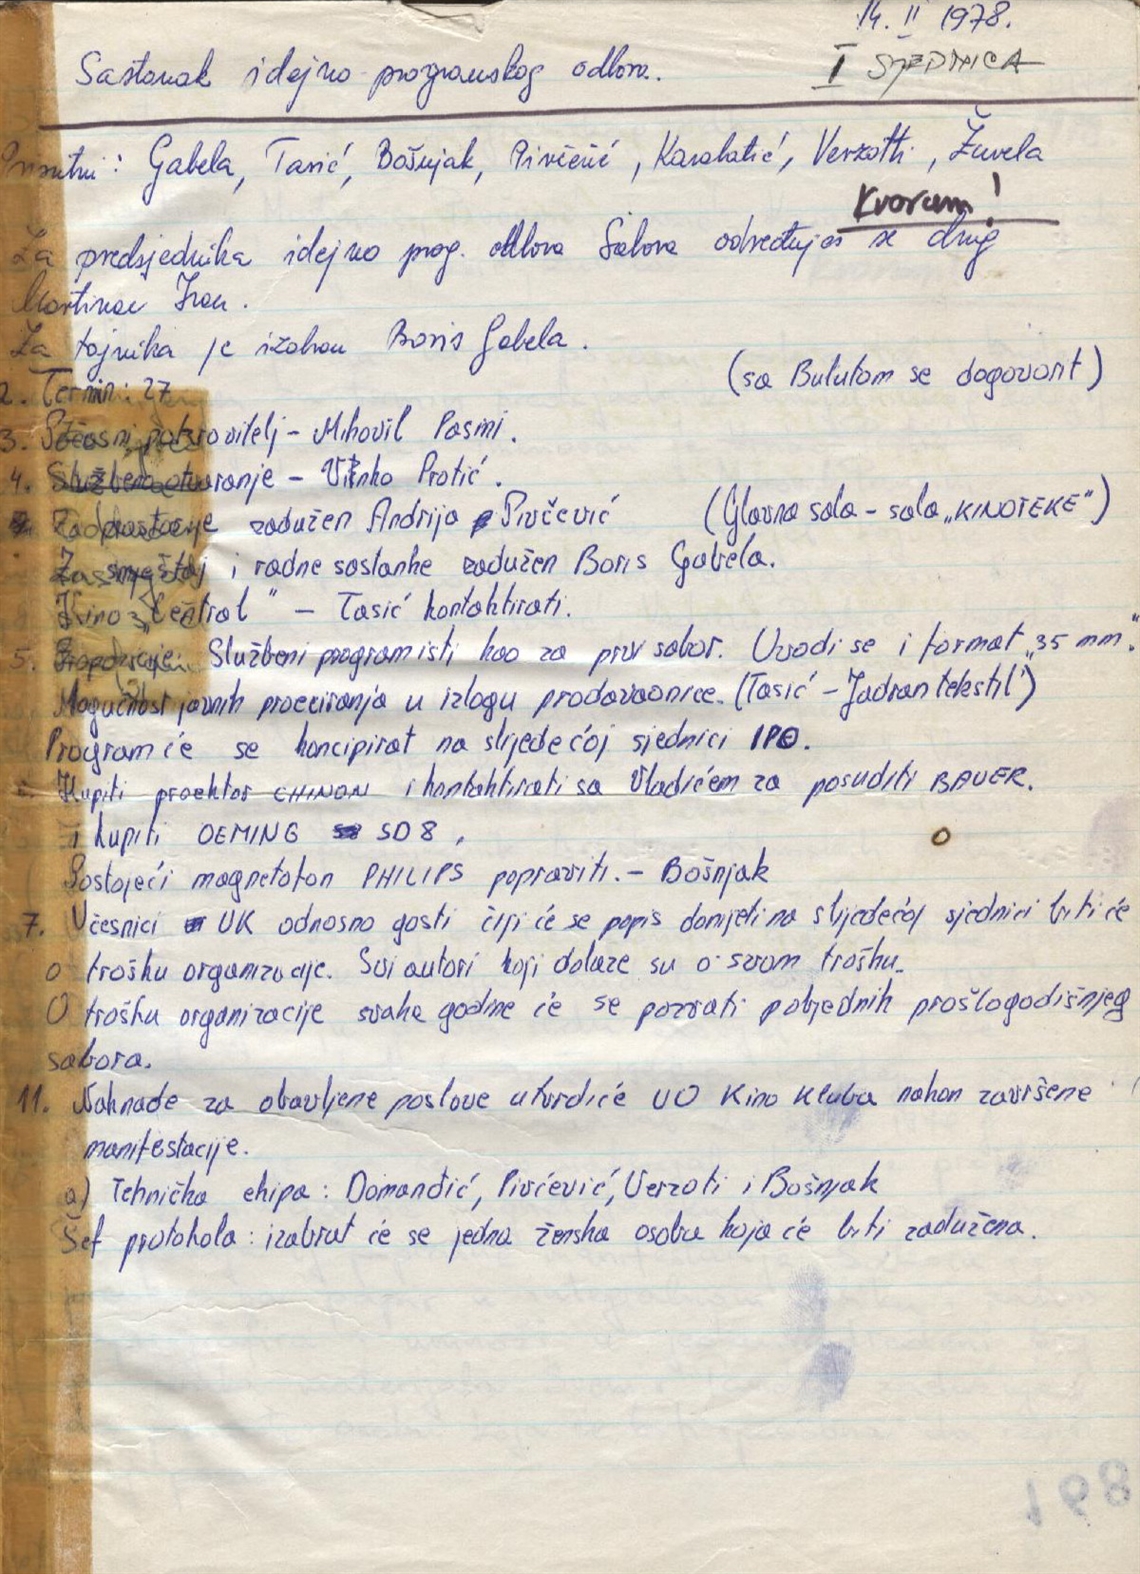 14. II 1978.
Sastanak idejno programskog odbora.
I SJEDNICA
Prisutni: Gabela, Tasić, Bošnjak, Pivčević, Karabatić, Verzotti, Žuvela
Kvorum!
Za predsjednika idejno prog. odbora Sabora određuje se drug
Martinac Ivan.
Za tajnika je izabran Boris Gabela.
(sa Bulutom se dogovorit)
2. Termin: 27
3. Počasni pokrovitelj - Mihovil Pasini.
4. Službeno otvaranje - Vinko Protić.
zadužen Andrija Pivčević (Glavna sala - sala „KINOTEKE")
Za smještaj i radne sastanke zadužen Boris Gabela.
Kino „Central" - Tasić kontaktirati.
5. Propozicije: Službeni program isti kao za prvi sabor. Uvodi se i format „35 mm."
Mogućnost javnih proeciranja u izlogu prodavaonice. (Tasić - Jadrantekstil)
Program će se koncipirat na slijedećoj sjednici IPO.
Kupiti proektor CHINON i kontaktirati sa Vladićem za posuditi BAUER.
i kupiti OEMING SD 8,
Postojeći magnetofon PHILIPS popraviti. - Bošnjak
7. Učesnici UK odnosno gosti čiji će se popis donijeti na slijedećoj sjednici biti će
o trošku organizacije. Svi autori koji dolaze su o svom trošku.
O trošku organizacije svake godine će se pozvati pobjednik prošlogodišnjeg
sabora.
11. Naknade za obavljene poslove utvrdiće UO Kino Kluba nakon završene
manifestacije.
a) Tehnička ekipa: Domanđić, Pivčević, Verzoti i Bošnjak
Šef protokola: izabrat će se jedna ženska osoba koja će biti zadužena.